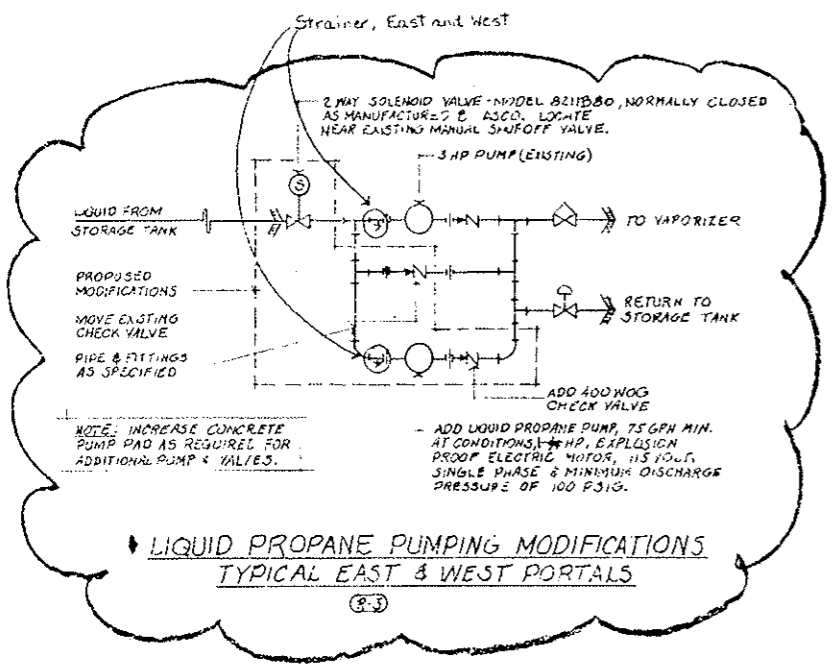 Strainer, East and West
2 WAY SOLENOID VALVE - MODEL 8211B80, NORMALLY CLOSED
AS MANUFACTURED & ASCO. LOCATE
NEAR EXISTING MANUAL SHUTOFF VALVE.
3 HP PUMP (EXISTING)
S
LIQUID FROM
STORAGE TANK
TO VAPORIZER
PROPOSED
MODIFICATIONS
RETURN TO
STORAGE TANK
MOVE EXISTING
CHECK VALVE
PIPE & FITTINGS
AS SPECIFIED
ADD 400 WOG
CHECK VALVE
NOTE: INCREASE CONCRETE
PUMP PAD AS REQUIRED FOR
ADDITIONAL PUMP & VALVES.
ADD LIQUID PROPANE PUMP, 75 GPH MIN.
AT CONDITIONS, HP, EXPLOSION
PROOF ELECTRIC MOTOR, 115 VOLT,
SINGLE PHASE & MINIMUM DISCHARGE
PRESSURE OF 100 PSIG.
LIQUID PROPANE PUMPING MODIFICATIONS
TYPICAL EAST & WEST PORTALS